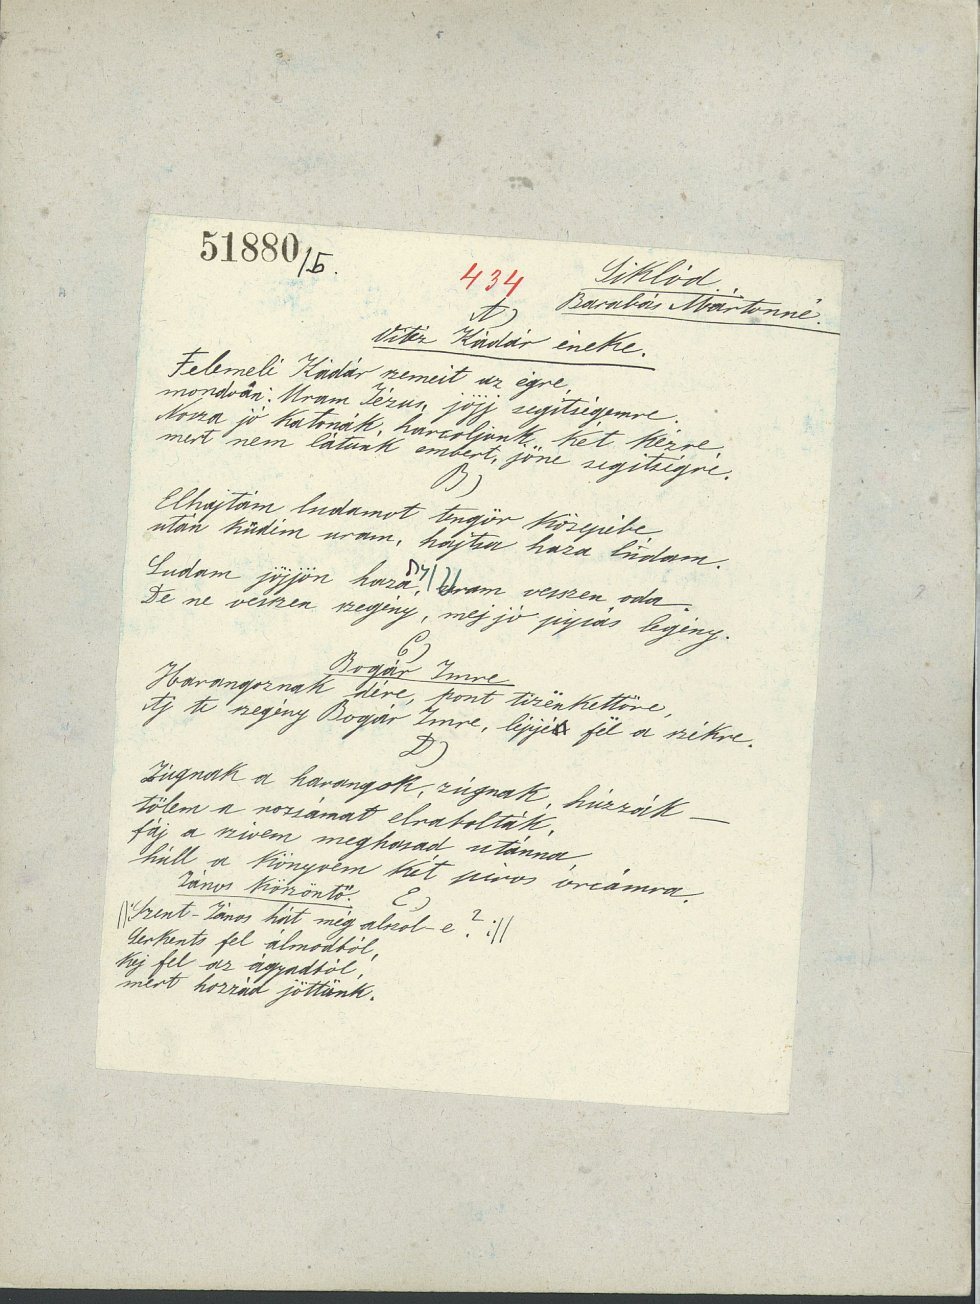 51880/5.
434
Siklód.
Barabás Mártonné.
A)
Vitéz Kádár éneke.
Felemeli Kádár szemeit az égre,
mondván: Uram Jézus, jöjj segitségemre.
Nosza jó katonák, harcoljunk két kézre,
mert nem látunk embert, jőne segitségre.
B)
Elhajtám ludamot tengör közepibe
után küdém uram, hajtsa haza lúdam.
Ludam jöjjön haza, uram vesszen oda.
De ne vesszen szegény, mej jó pipás legény.
C)
Bogár Imre
Harangoznak délre, pont tizënkettőre,
Aj te szegény Bogár Imre, lépjé fël a székre.
D)
Zúgnak a harangok, zúgnak, húzzák —
tőlem a rozsámat elrabolták,
fáj a szivem meghasad utánna
hull a könyvem két piros órcámra.
János köszöntő. E)
||: Szent-János hát még alszol-e? :||
Serkents fel álmodból,
kej fel az ágyadból,
mert hozzád jöttünk.